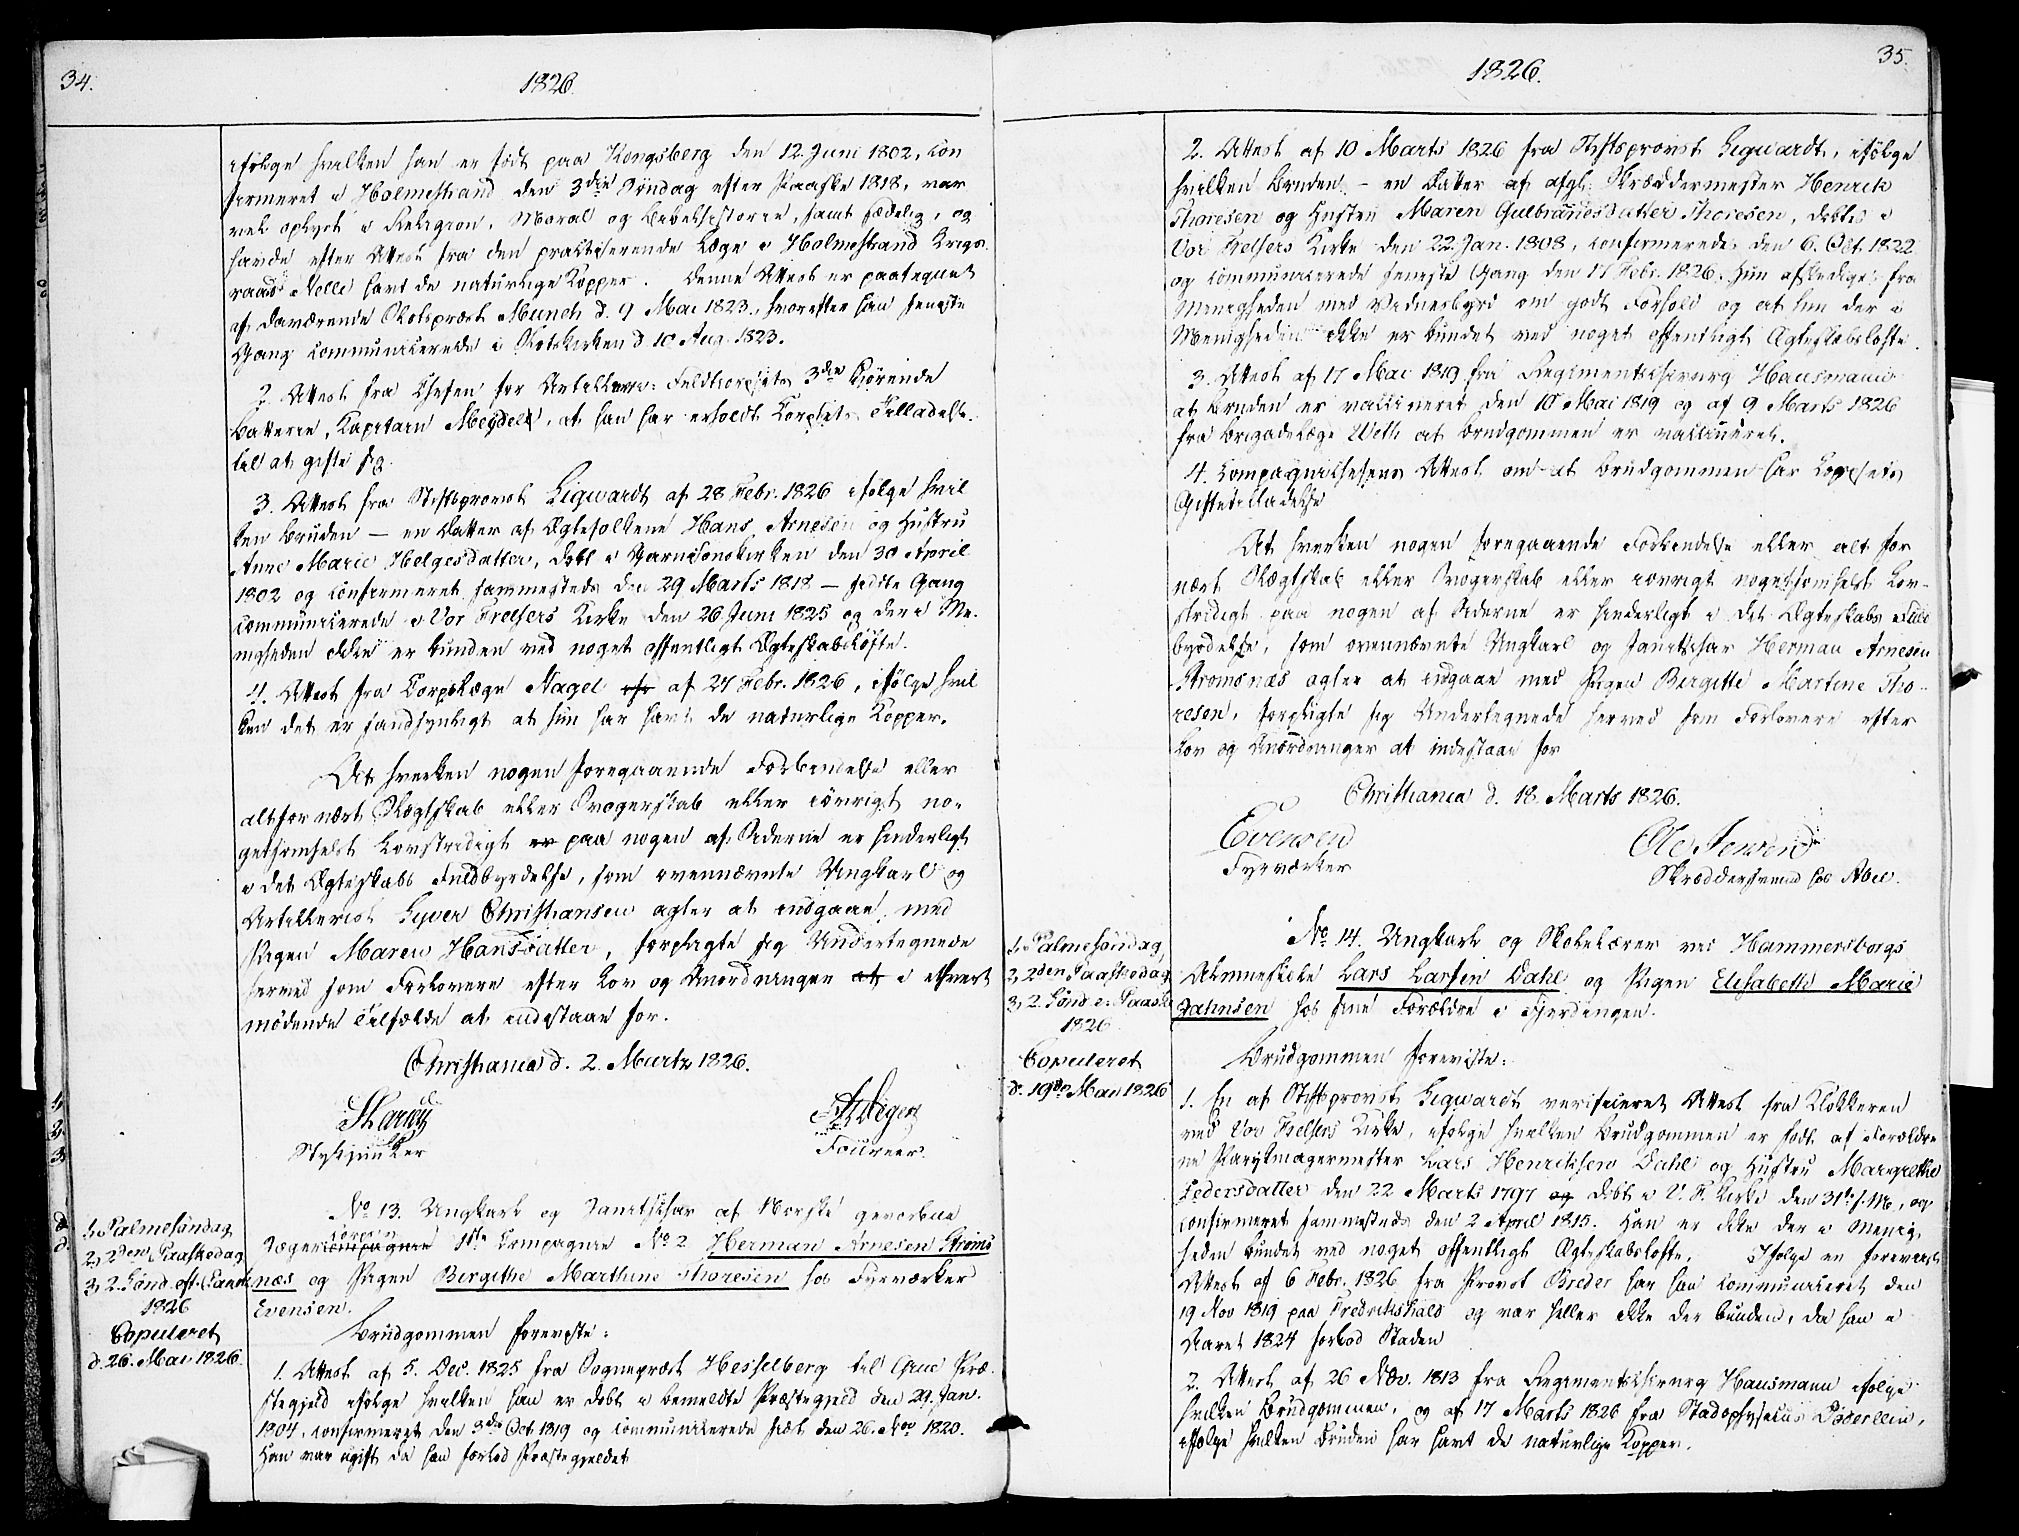 34.
1826.
ifølge hvilken han er født paa Kongsberg den 12. Juni 1802, con
firmeret i Holmestrand den 3die Søndag efter Paaske 1818, var
vel oplyst i Religion, Moral og Bibelhistorie, samt sædelig, og
havde efter Attest fra den praktiserende Læge i Holmestrand Krigs-
raad Nelle havt de naturlige Kopper. Denne Attest er paategnet
af daværende Slotspræst Munch d. 9 Mai 1823, hvorefter han seneste
Gang communicerede i Slotskirken d 10 Aug. 1823.
2. Attest fra Chefen for Artilleri: Feldtcorpsets 3die kjørende
Batterie, Kapitain Meydell, at han har erholdt Corpsets Tilladelse
til at gifte sig.
3. Attest fra Stiftsprovst Sigwardt af 28 Febr. 1826 ifølge hvil
ken Bruden – en Datter af Ægtefolkene Hans Arnesen og Hustru
Anne Marie Helgesdatter, døbt i Garnisonskirken den 30 April
1802 og confirmeret sammesteds den 29 Marts 1818 – sidste Gang
communicerede i Vor Frelsers Kirke den 26 Juni 1825 og der i Me-
nigheden ikke er bunden ved noget offentligt Ægteskabsløfte.
4. Attest fra Corpslæge Nagel af 27 Febr. 1826, ifølge hvil
ken det er sandsynligt at hun har havt de naturlige Kopper.
At hverken nogen foregaaende Forbindelse eller
altfor nært Slægtskab eller Svogerskab eller iøvrigt no-
getsomhelst Lovstridigt er paa nogen af Siderne er hinderligt
i det Ægteskabs Fuldbyrdelse, som ovennævnte Ungkarl og
Artillerist Syver Christiansen agter at indgaae med
Pigen Maren Hansdatter, forpligte sig Undertegnede
herved som Forlovere efter Lov og Anordninger at i ethvert
mødende Tilfælde at indestaae for.
Christiania d. 2. Marts 1826.
Stykjunker
Foureer.
1, Palmesøndag
2, 2den Paaskedag
3, 2. Sønd. eft. Paaske
1826
Copuleret
d. 26. Mai 1826.
No 13. Ungkarl og Janitschar af Norske gevorbne
Jægercorps compagnie 1ste Compagnie No 2 Herman Arnesen Strøms
næs og Pigen Bergithe Marthine Thoresen hos Fyrværker
Evensen.
Brudgommen foreviste:
1. Attest af 5. Dec. 1825 fra Sognepræst Hesselberg til Grue Præ-
stegjeld ifølge hvilken han er døbt i bemeldte Præstegjeld den 29. Jan.
1804, confirmeret den 3die Oct 1819 og communicerede sidst den 26. Nov 1820.
Han var ugift da han forlod Præstegjeldet
35.
1826.
2. Attest af 10 Marts 1826 fra Stiftsprovst Sigwardt, ifølge
hvilken Bruden – en Datter af afgl: Skræddermester Henrik
Thoresen og Hustru Maren Gulbrandsdatter Thoresen, døbtes i
Vor Frelsers Kirke den 22. Jan. 1808, confirmeredes den 6. Oct. 1822
og communicerede seneste Gang den 17 Febr. 1826. Hun afskediges fra
Menigheden med Vidnesbyrd om godt Forhold og at hun der i
Menigheden ikke er bundet ved noget offentligt Ægteskabsløfte.
3. Attest af 17 Mai 1819 fra Regimentschirurg Hausmann
at Bruden er vaccineret den 10 Mai 1819 og af 9 Marts 1826
fra Brigadelæge Weth at Brudgommen er vaccineret.
4. Compagnichefens Attest om at Brudgommen har Corpsets
Giftetilladelse
At hverken nogen foregaaende Forbindelse eller alt for
nært Slægtskab eller Svogerskab eller iøvrigt noget somhelst Lov-
stridigt paa nogen af Siderne er hinderligt i det Ægteskabs Fuld
byrdelse, som ovennævnte Ungkarl og Janitschar Herman Arnesen
Strømsnæs agter at indgaae med Pigen Bergitte Martine Tho-
resen, forpligte sig Undertegnede herved som Forlovere efter
Lov og Anordninger at indestaae for
Christiania d. 18. Marts 1826.
Evensen
Fyrværker
Ole Jensen
Skræddersvend hos Abel.
1, Palmesøndag,
2, 2den Paaskedag,
3, 2. Sønd e. Paaske
1826.
Copuleret
d. 19de Mai 1826
No 14. Ungkarl og Skolelærer ved Hammersborgs
Almueskole Lars Larsen Dahl og Pigen Elisabeth Marie
Jahnsen hos sine Forældre i Fjerdingen.
Brudgommen foreviste:
1. En af Stiftsprovst Sigwardt verificeret Attest fra Klokkeren
ved Vor Frelsers Kirke, ifølge hvilken Brudgommen er født af Forældre
ne Parykmagermester Lars Henriksen Dahl og Hustru Margrethe
Pedersdatter den 22 Marts 1797 og døbt i V. F. Kirke den 31te s. M., og
confirmeret sammesteds den 2 April 1815. Han er ikke der i Menig-
heden bundet ved noget offentligt Ægteskabsløfte. Ifølge en foreviist
Attest af 6 Febr. 1826 fra Provst Breder har han communiceret den
19 Nov 1819 paa Fredrikshald og var heller ikke der bunden, da han i
Aaret 1824 forlod Staden
2. Attest af 26 Nov. 1813 fra Regimentschirurg Hausmann ifølge
hvilken Brudgommen, og af 17 Marts 1826 fra Stadsphysicus Døderlein,
ifølge hvilken Bruden har havt de naturlige Kopper.